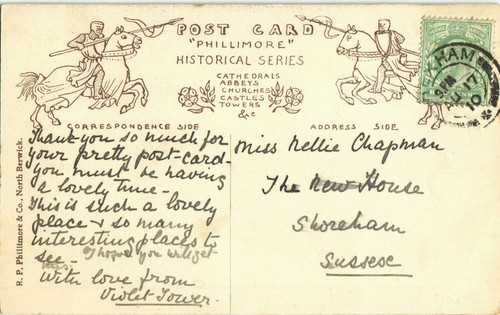 POST CARD
"PHILLIMORE"
HISTORICAL SERIES
CATHEDRALS
ABBEYS
CHURCHES
CASTLES
TOWERS
&c
CORRESPONDENCE SIDE
ADDRESS SIDE
HAM
AU 17
10
R. P. Phillimore & Co., North Berwick.
Thank-you so much for
your pretty post-card-
you must be having
a lovely time-
This is such a lovely
place & so many
interesting places to
see- I hope you will get
this.
With love from
Violet Tower.
Miss Nellie Chapman
The New House
Shoreham
Sussex